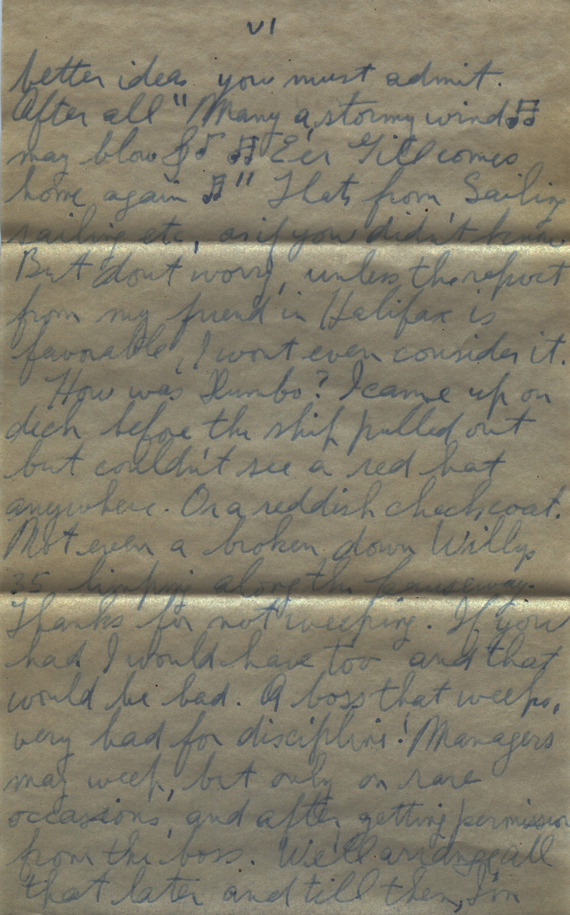 VI
better ideas you must admit.
After all "Many a stormy wind ♫
may blow ♪ ♫ E'er Gill comes
home again ♫" Thats from Sailing
sailing etc, as if you didn't know
But dont worry, unless the report
from my friend in Halifax is
favorable, I wont even consider it.
How was Dumbo? I came up on
deck before the ship pulled out
but couldn't see a red hat
anywhere. Or a reddish check coat.
Not even a broken down Willys
35 limping along the causeway.
Thanks for not weeping. If you
had I would have too and that
would be bad. A boss that weeps,
very bad for discipline! Managers
may weep, but only on rare
occassions, and after getting permission
from the boss. We'll arrange all
that later and till then, I'm